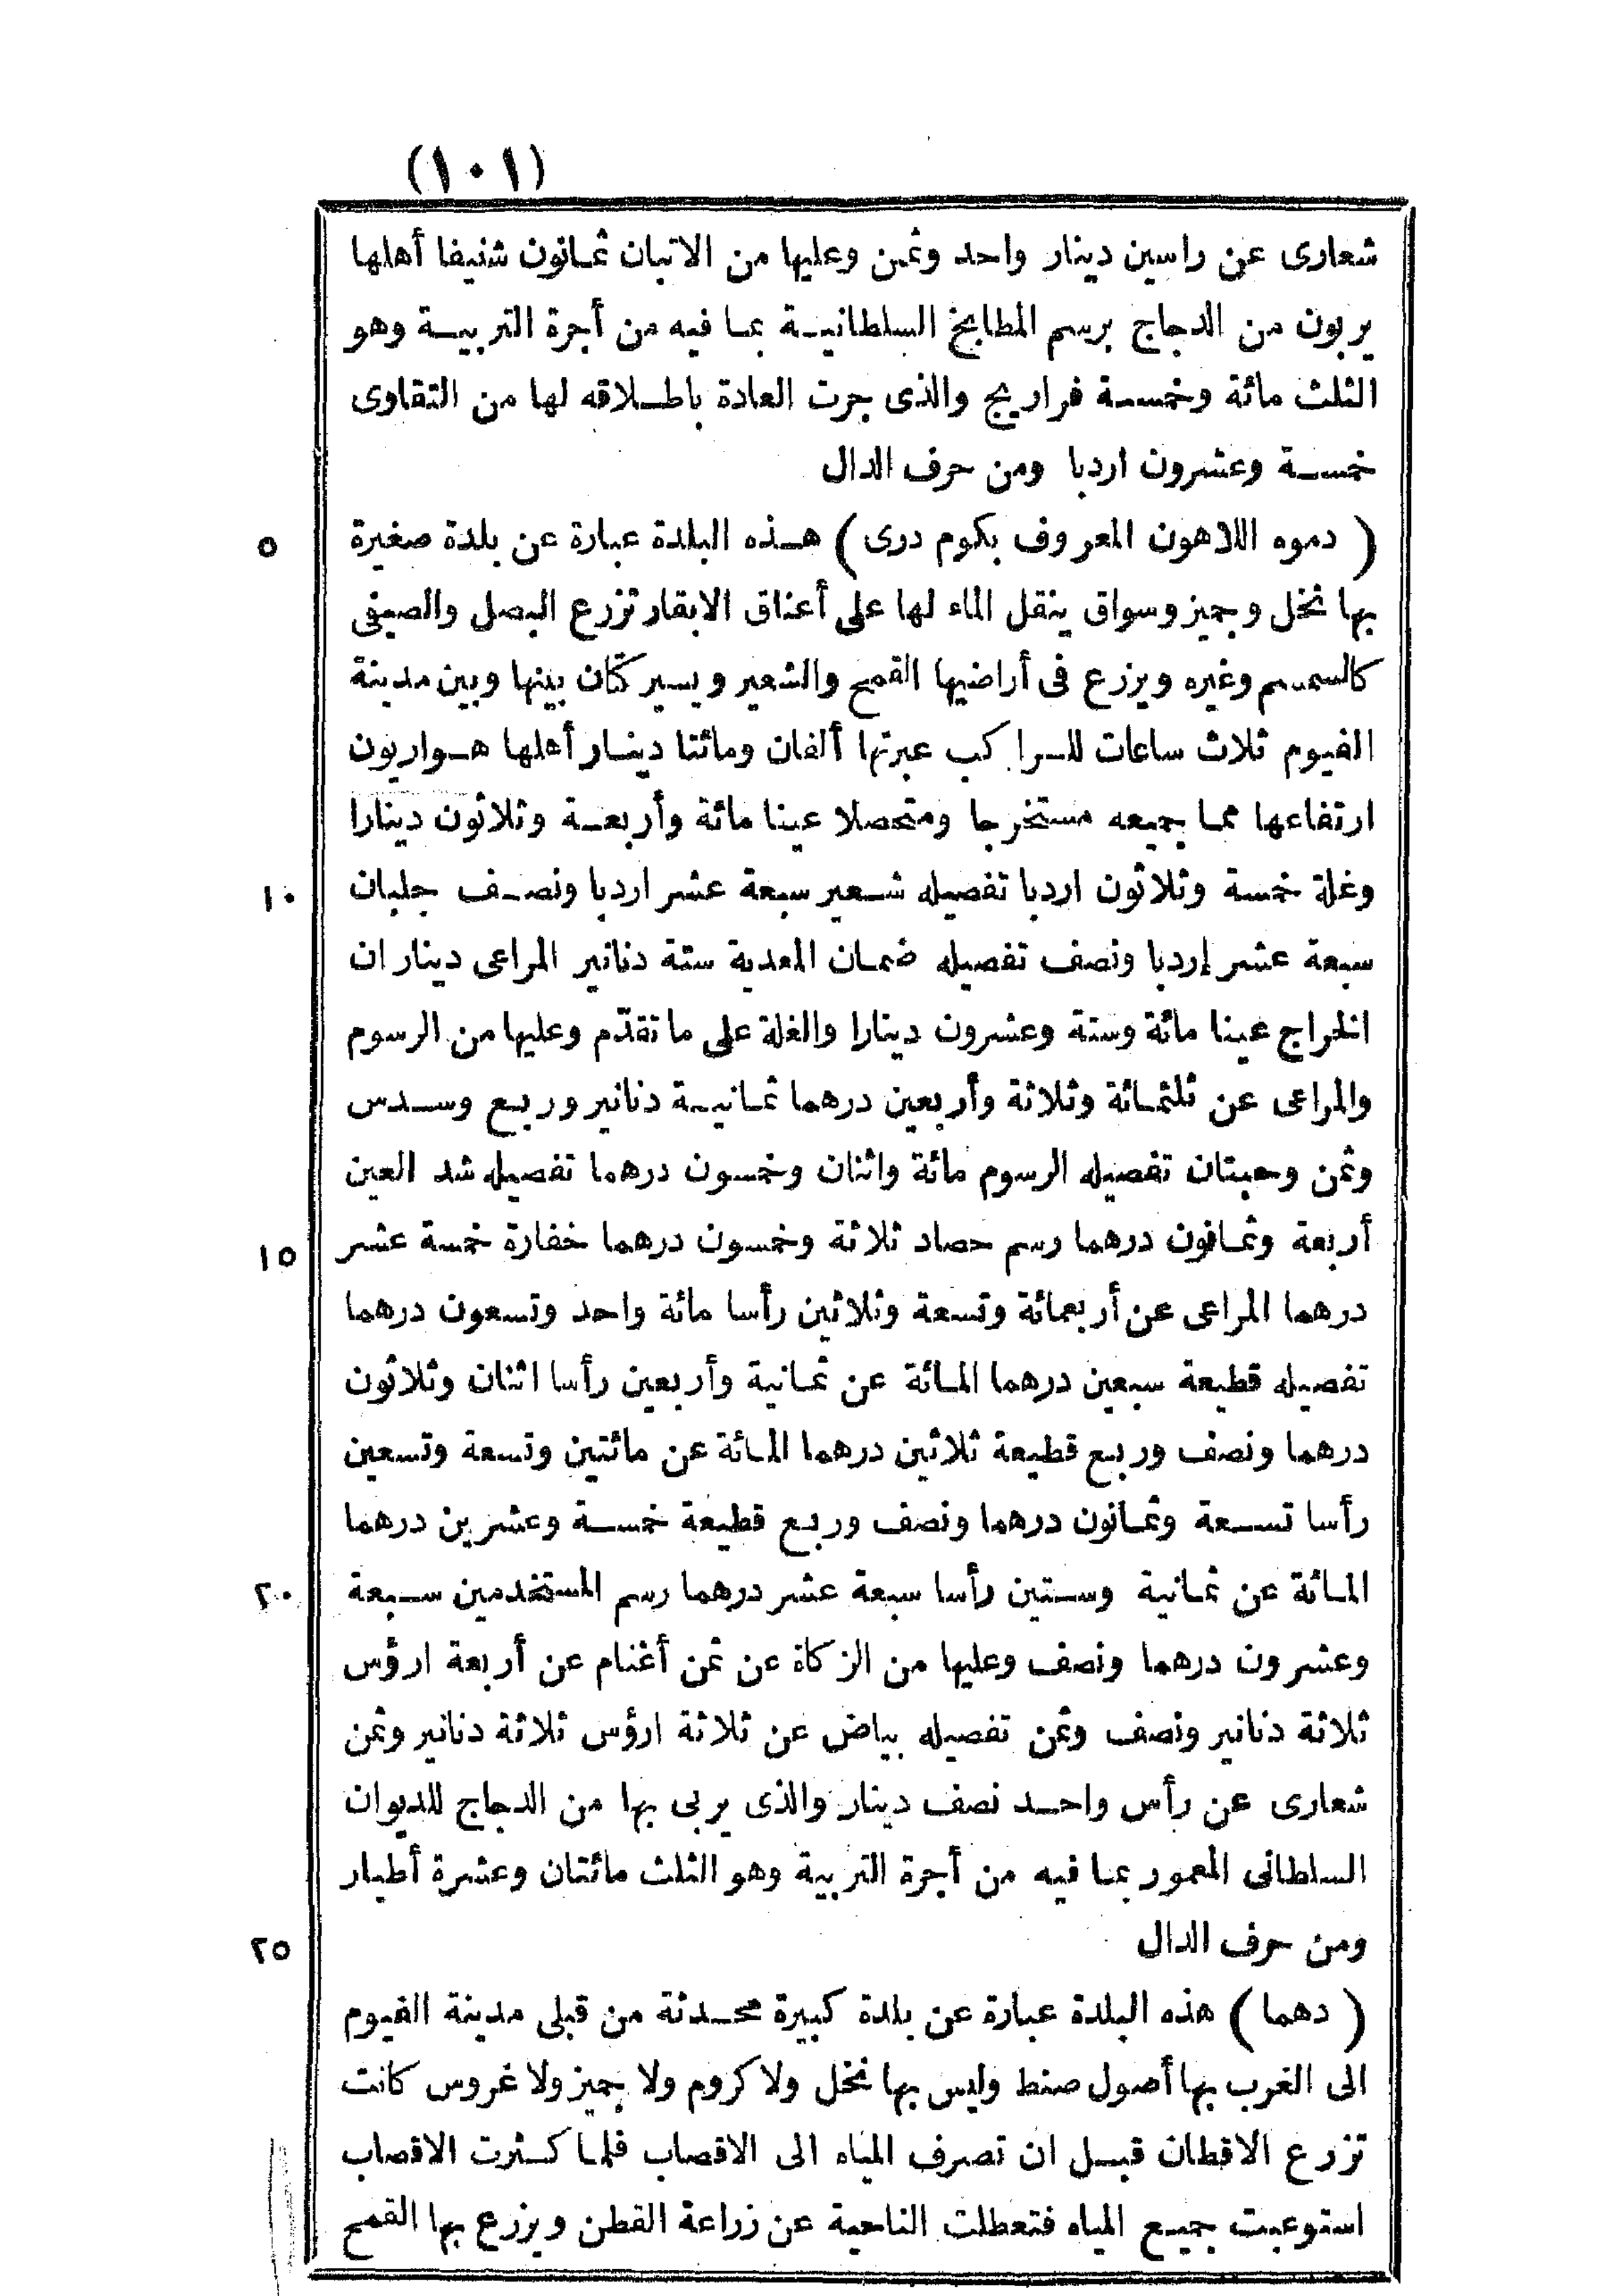 (١٠١)
شعارى عن راسين دينار واحد وثمن وعليها من الاتبان ثمانون شنيفا أهلها
يربون من الدجاج برسم المطابخ السلطانية بما فيه من أجرة التربية وهو
الثلث مائة وخمسة فراريج والذى جرت العادة باطلاقه لها من التقاوى
خمسة وعشرون اردبا ومن حرف الدال
٥ ( دموه اللاهون المعروف بكوم درى ) هذه البلدة عبارة عن بلدة صغيرة
بها نخل وجميز وسواق ينقل الماء لها على أعناق الابقار تزرع البصل والصيفى
كالسمسم وغيره ويزرع فى أراضيها القمح والشعير ويسير كتان بينها وبين مدينة
الفيوم ثلاث ساعات للراكب عبرتها ألفان ومائتا دينار أهلها هواريون
ارتفاعها مما جميعه مستخرجا ومتحصلا عينا مائة وأربعة وثلاثون دينارا
١٠ وغلة خمسة وثلاثون اردبا تفصيله شعير سبعة عشر اردبا ونصف جلبان
سبعة عشر إردبا ونصف تفصيله ضمان المعدية ستة دنانير المراعى ديناران
الخراج عينا مائة وستة وعشرون دينارا والغلة على ما تقدّم وعليها من الرسوم
والمراعى عن ثلثمائة وثلاثة وأربعين درهما ثمانية دنانير وربع وسدس
وثمن وحبتان تفصيله الرسوم مائة واثنان وخمسون درهما تفصيله شد العين
١٥ أربعة وثمانون درهما رسم حصاد ثلاثة وخمسون درهما خفارة خمسة عشر
درهما المراعى عن أربعمائة وتسعة وثلاثين رأسا مائة واحد وتسعون درهما
تفصيله قطيعة سبعين درهما المائة عن ثمانية وأربعين رأسا اثنان وثلاثون
درهما ونصف وربع قطيعة ثلاثين درهما المائة عن مائتين وتسعة وتسعين
رأسا تسعة وثمانون درهما ونصف وربع قطيعة خمسة وعشرين درهما
٢٠ المائة عن ثمانية وستين رأسا سبعة عشر درهما رسم المستخدمين سبعة
وعشرون درهما ونصف وعليها من الزكاة عن ثمن أغنام عن أربعة ارؤس
ثلاثة دنانير ونصف وثمن تفصيله بياض عن ثلاثة ارؤس ثلاثة دنانير وثمن
شعارى عن رأس واحد نصف دينار والذى يربى بها من الدجاج للديوان
السلطانى المعمور بما فيه من أجرة التربية وهو الثلث مائتان وعشرة أطيار
٢٥ ومن حرف الدال
( دهما ) هذه البلدة عبارة عن بلدة كبيرة محدثة من قبلى مدينة الفيوم
الى الغرب بها أصول صنط وليس بها نخل ولا كروم ولا جميز ولا غروس كانت
تزرع الاقطان قبل ان تصرف المياه الى الاقصاب فلما كثرت الاقصاب
استوعبت جميع المياه فتعطلت الناحية عن زراعة القطن ويزرع بها القمح